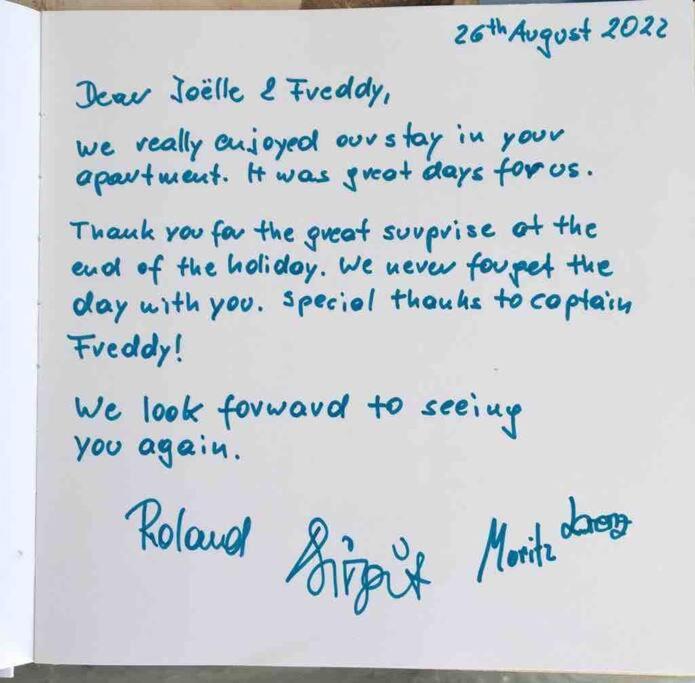 26th August 2022
Dear Joëlle & Freddy,
we really enjoyed our stay in your
apartment. It was great days for us.
Thank you for the great surprise at the
end of the holiday. We never forget the
day with you. Special thanks to captain
Freddy!
We look forward to seeing
you again.
Roland Moritz